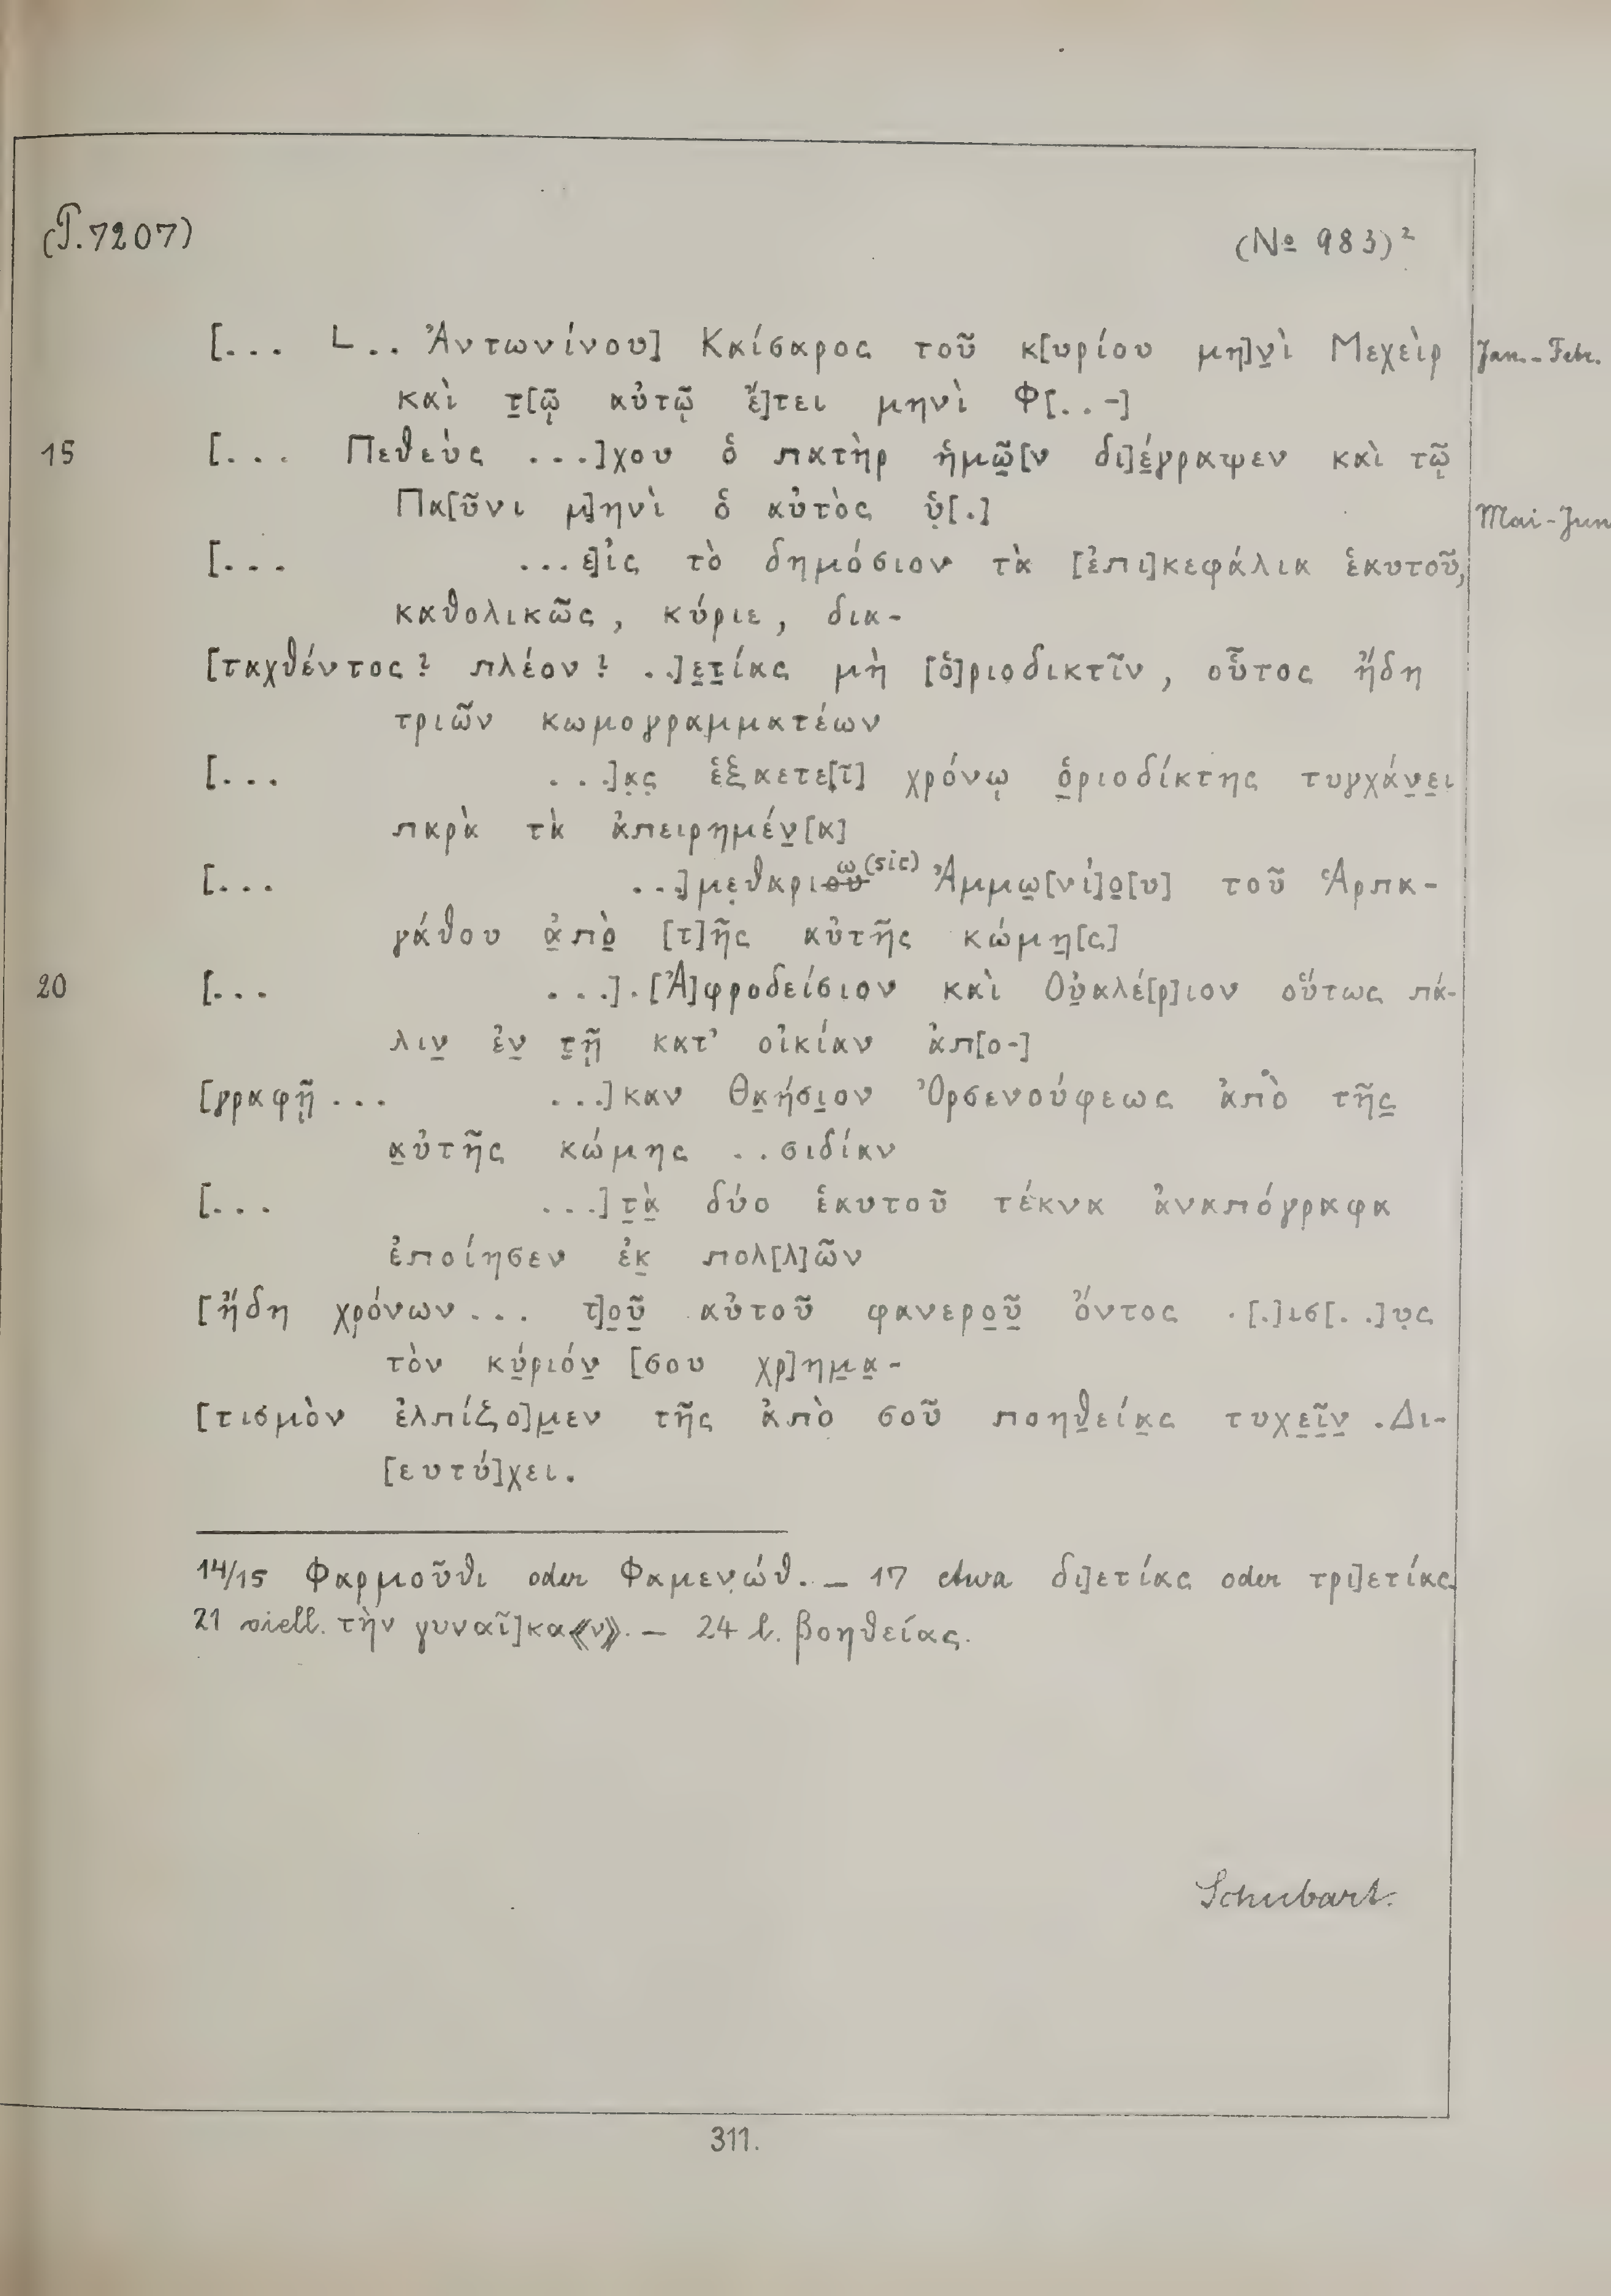 (P. 7207) (№ 983)²
[... L.. Ἀντωνίνου] Καίσαρος τοῦ κ[υρίου μη]ν̲ὶ Μεχεὶρ Jan.-Febr.
καὶ τ̲[ῷ αὐτῷ ἔ]τει μηνὶ Φ[..-]
15 [... Πεθεὺς ...]χου ὁ πατὴρ ἡμῶ̲[ν δι]έ̲γραψεν καὶ τῷ
Πα[ῦνι μ]ηνὶ ὁ αὐτὸς ὑ̣[.] Mai-Jun
[... ...ε]ἰς τὸ δημόσιον τὰ [ἐπι]κεφάλια ἑαυτοῦ,
καθολικῶς, κύριε, δια-
[ταχθέντος? πλέον? ..]ε̲τ̲ίας μὴ [ὁ]ριοδικτῖν, οὗτος ἤδη
τριῶν κωμογραμματέων
[... ...]α̣ς̣ ἑξαετε[ῖ] χρόνῳ ὁ̲ριοδίκτης τυγχάν̲ε̲ι
παρὰ τὰ ἀπειρημέν̲[α]
[... ...]με̣θαριου ω (sic) Ἀμμω̲[νί]ο̲[υ] τοῦ Ἁρπα-
γάθου ἀ̲πὸ̲ [τ]ῆς αὐτῆς κώμη̲[ς]
20 [... ...].[Ἀ]φροδείσιον καὶ Οὐ̲αλέ[ρ]ιον οὕτως πά-
λιν̲ ἐν̲ τ̲ῇ κατ' οἰκίαν ἀπ[ο-]
[γραφῇ... ...]καν Θα̲ήσι̲ον Ὀρσενούφεως ἀπὸ τῆς̲
α̲ὐτῆς κώμης ..σιδίαν
[... ...]τ̲ὰ̲ δύο ἑαυτοῦ τέκνα ἀναπόγραφα
ἐποίησεν ἐκ̲ πολ[λ]ῶν
[ἤδη χρόνων... τ]ο̲ῦ̲ αὐτοῦ φανερο̲ῦ̲ ὄντος .[.]ισ[..]υ̣ς
τὸν κύ̲ριόν̲ [σου χρ]ημ̲α̲-
[τισμὸν ἐλπίζο]μ̲εν τῆς ἀπὸ σοῦ ποηθ̲εία̲ς τυχε̲ῖ̲ν̲. Δι-
[ευτύ]χει.
14/15 Φαρμοῦθι oder Φαμενώθ. – 17 etwa δι]ετίας oder τρι]ετίας.
21 viell. τὴν γυναῖ]κα⟪ν⟫. – 24 l. βοηθείας.
Schubart.
311.